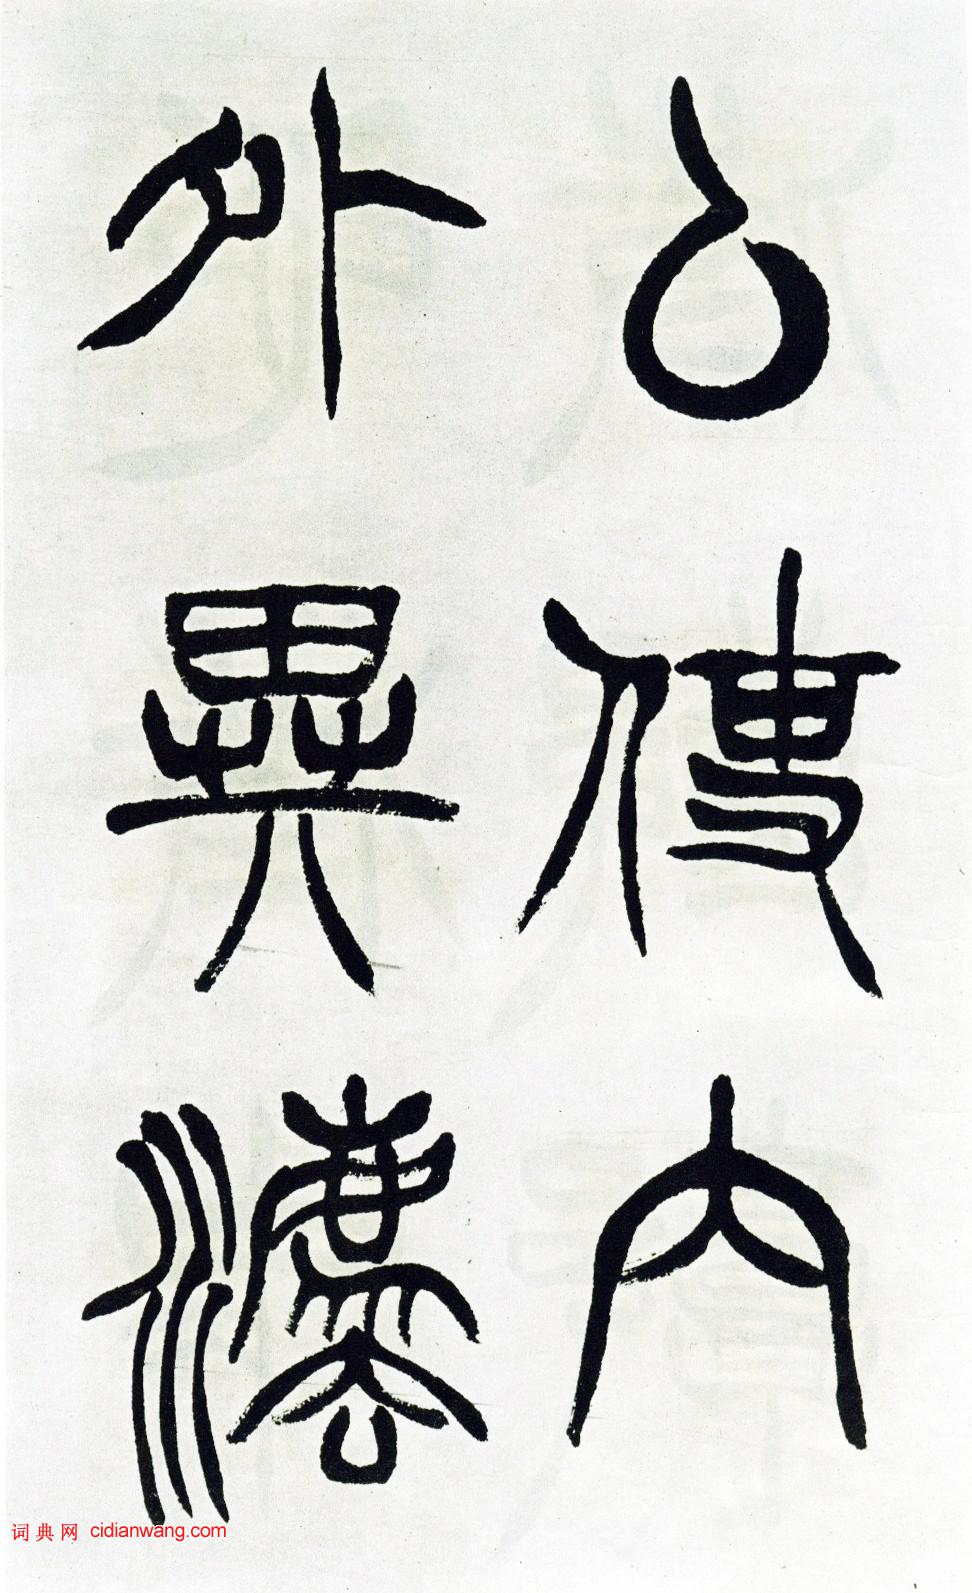 厶使内
外異灋
词典网 cidianwang.com